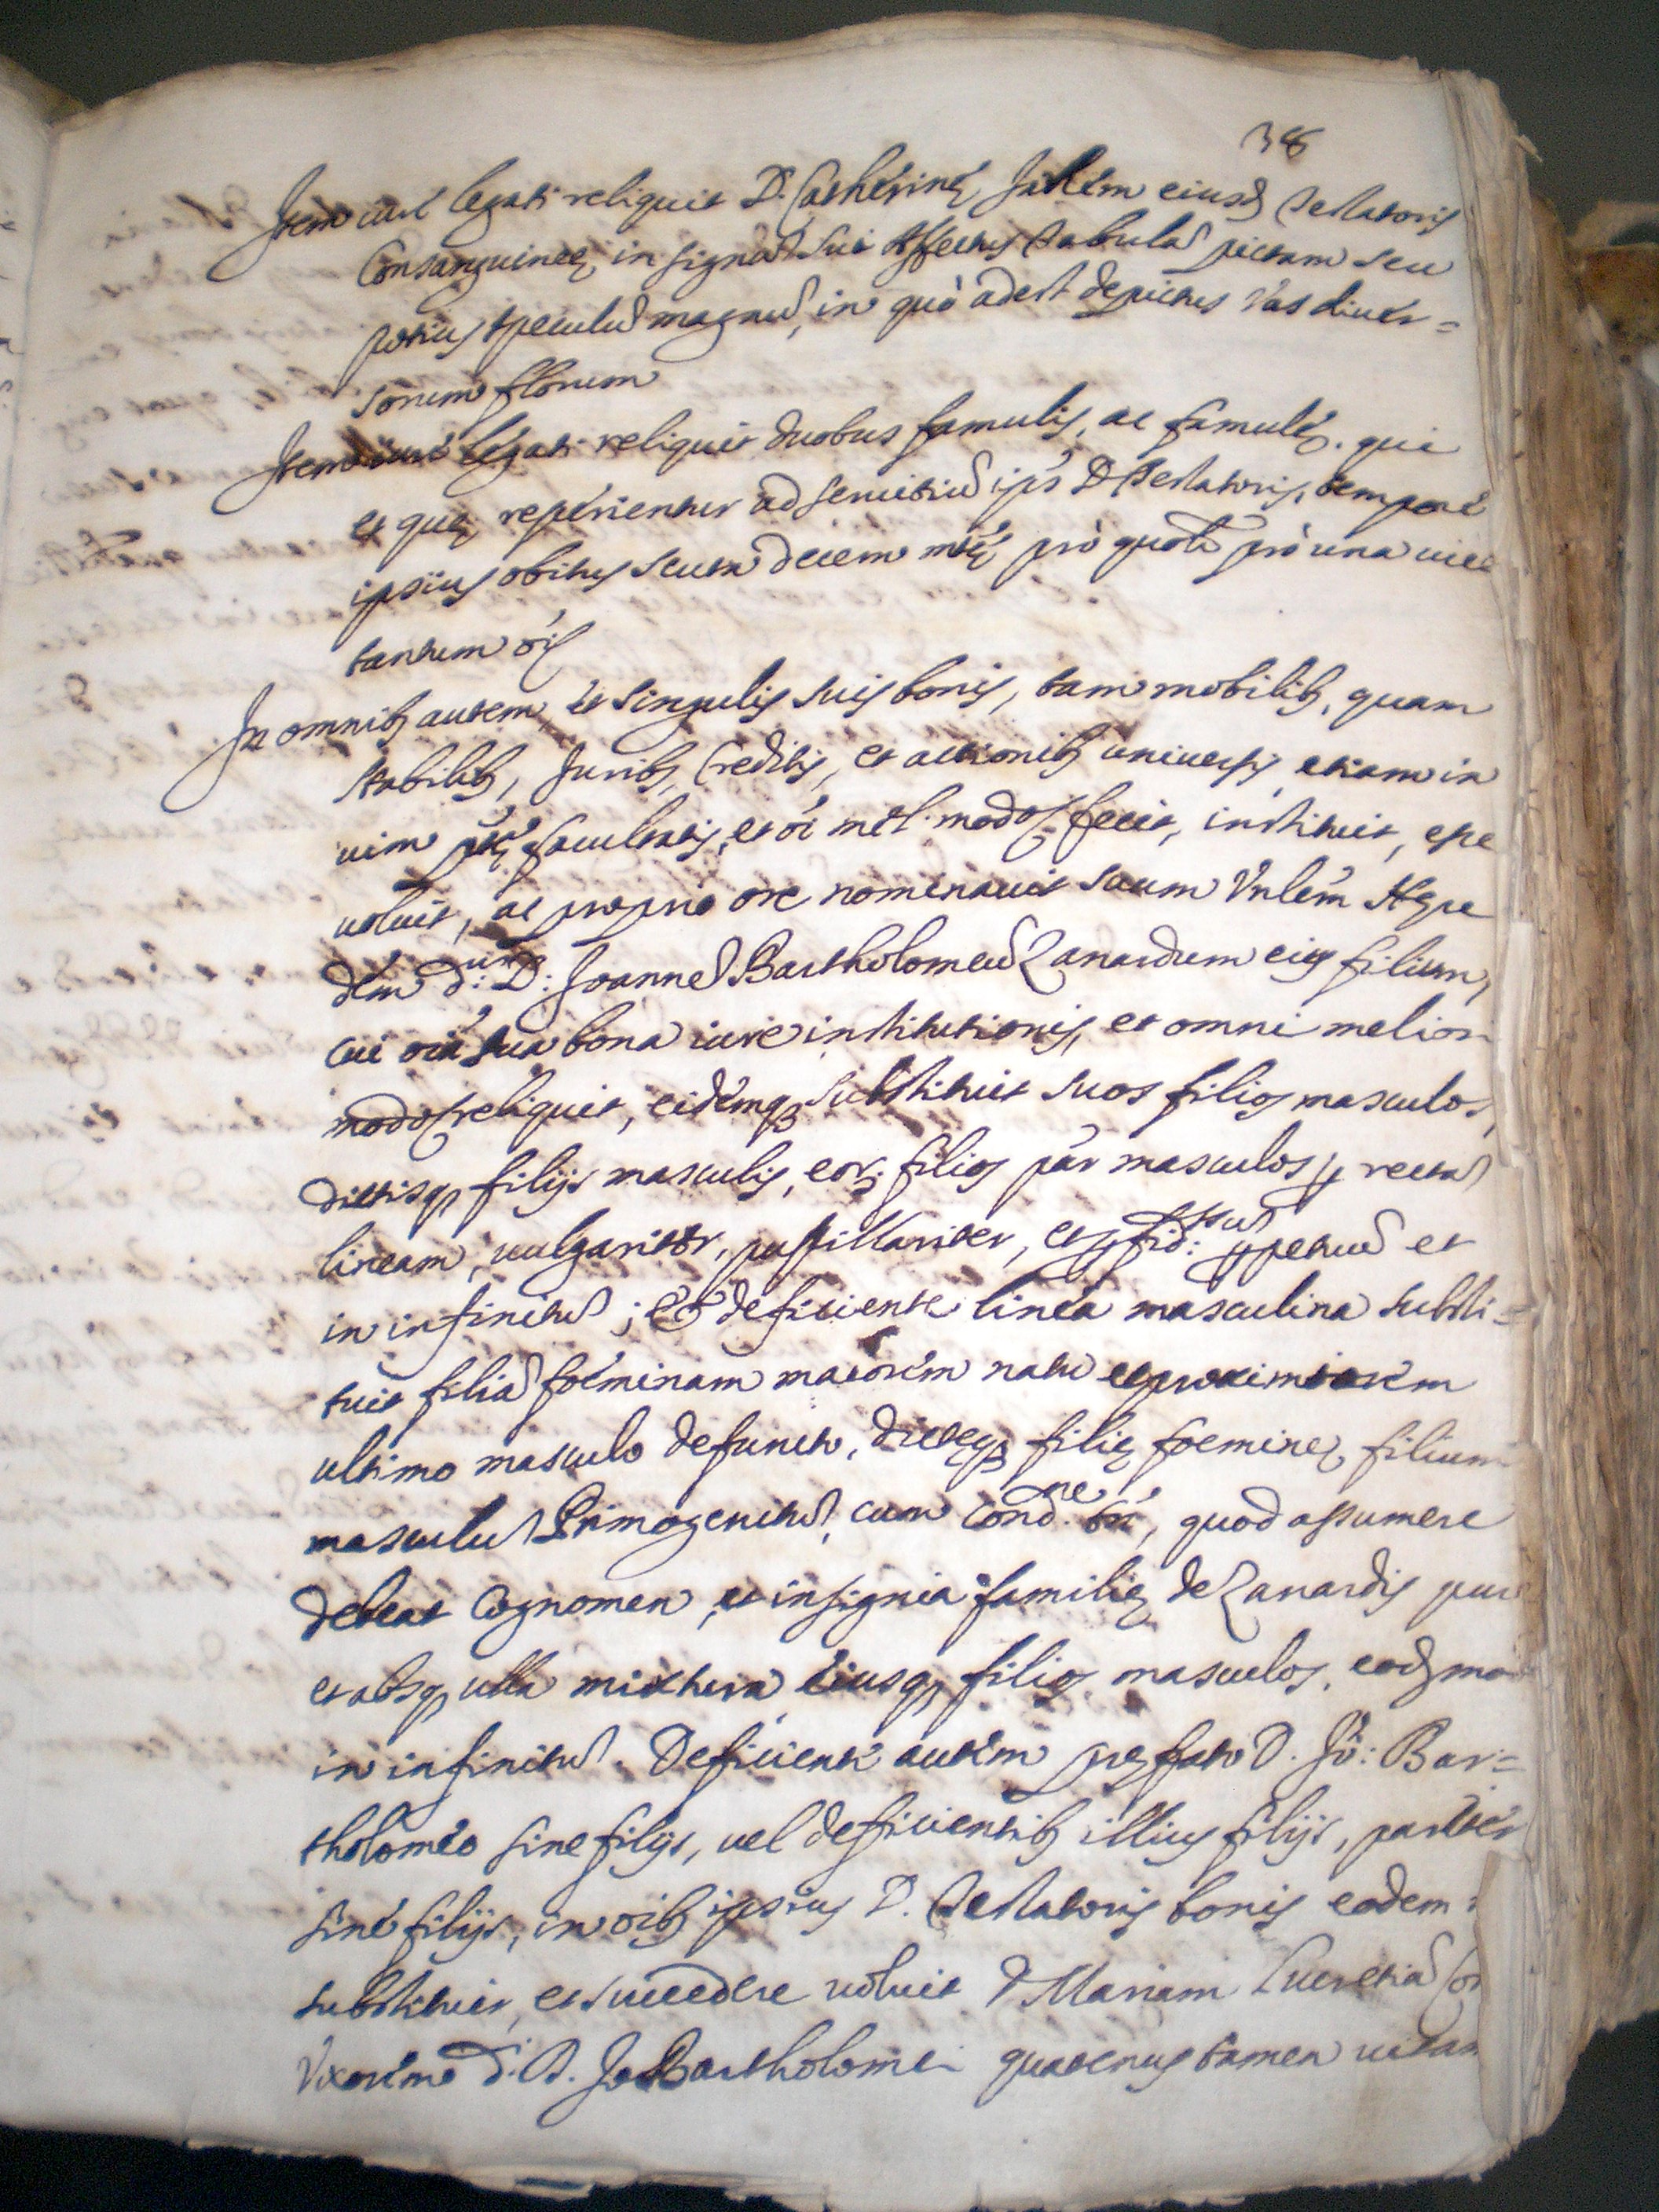 38
Item iure legati reliquit D. Catherinę eiusd Testatoris
Consanguineę, in signũ sui affectus tabulã pictam seu
potius speculũ magnũ, in quò adest depictus Vas diuer=
sorum florum
Item iure legati reliquit duobus famulis, ac famulę. qui
et quę reperientur ad seruitiũ ips D Testatoris, tempore
ipsius obitus scuta decem pro quolt pro una uice
tantum
In omnib autem, et singulis suis bonis, tam mobilib, quam
stabilib, Iurib, Creditis, et actionib uniuersis, etiam in
uim facultatis, et oi mel. modo fecit, instituit, esse
uoluit, ac proprio ore nomenauit suum Vnlem Hęre
dem d: D: Joannẽ Bartholomeũ Zanardum eius filium,
cui oia sua bona iure institutionis, et omni meliori
modo reliquit, eidemq substituit suos filios masculos,
dictisq filijs masculis, eor. filios par masculos p rectã
lineam, uulgariter, pupillariter, et p fid: ssũ ppetuũ et
in infinitũ; Et deficiente linea masculina substi=
tuit filiã foeminam maiorem natu et proximiorem
ultimo masculo defuncto, dictęq filię foeminę filium
masculũ Primogenitũ, cum cond.ne tn, quod assumere
debeat Cognomen, et insignia familię de Zanardis pure
et absq ulla mixtura eiusq filios masculos, eod mo
in infinitũ. Deficiente autem pręfato D. Jo: Bar=
tholomeo sine filijs, uel deficientib illius filijs, pariter
sine filijs, in oib ipsius D. Testatoris bonis eadem
substituit, et succedere uoluit D Mariam Lucretiã
Vxorem d. D. Jo Bartholomei quatenus tamen uitam